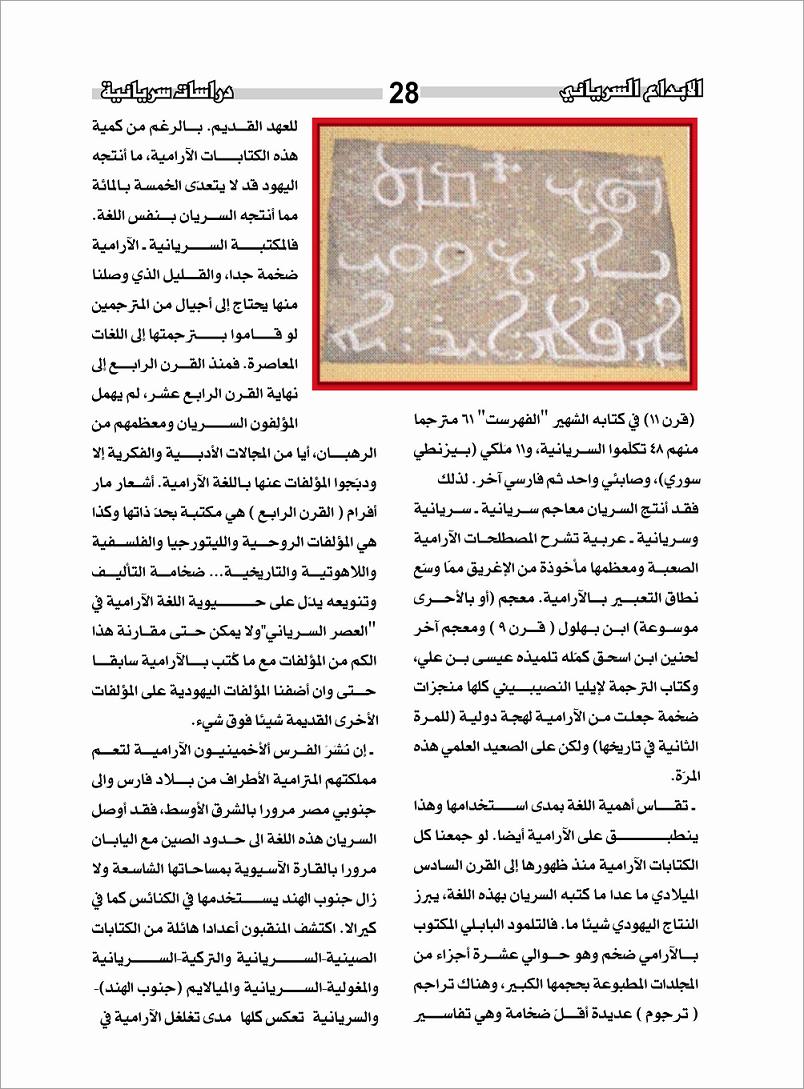 الابداع السرياني
28
دراسات سريانية
(قرن ١١) في كتابه الشهير "الفهرست" ٦١ مترجما
منهم ٤٨ تكلّموا السريانية، و١١ مَلكي (بيزنطي
سوري)، وصابئي واحد ثم فارسي آخر. لذلك
فقد أنتج السريان معاجم سريانية ـ سريانية
وسريانية ـ عربية تشرح المصطلحات الآرامية
الصعبة ومعظمها مأخوذة من الإغريق ممّا وسّع
نطاق التعبير بالآرامية. معجم (أو بالأحرى
موسوعة) ابن بهلول ( قرن ٩ ) ومعجم آخر
لحنين ابن اسحق كمّله تلميذه عيسى بن علي،
وكتاب الترجمة لإيليا النصيبيني كلها منجزات
ضخمة جعلت من الآرامية لهجة دولية (للمرة
الثانية في تاريخها) ولكن على الصعيد العلمي هذه
المرّة.
ـ تقاس أهمية اللغة بمدى استخدامها وهذا
ينطبق على الآرامية أيضا. لو جمعنا كل
الكتابات الآرامية منذ ظهورها إلى القرن السادس
الميلادي ما عدا ما كتبه السريان بهذه اللغة، يبرز
النتاج اليهودي شيئا ما. فالتلمود البابلي المكتوب
بالآرامي ضخم وهو حوالي عشرة أجزاء من
المجلدات المطبوعة بحجمها الكبير، وهناك تراجم
( ترجوم ) عديدة أقلّ ضخامة وهي تفاسير
للعهد القديم. بالرغم من كمية
هذه الكتابات الآرامية، ما أنتجه
اليهود قد لا يتعدّى الخمسة بالمائة
مما أنتجه السريان بنفس اللغة.
فالمكتبة السريانية ـ الآرامية
ضخمة جدا، والقليل الذي وصلنا
منها يحتاج إلى أجيال من المترجمين
لو قاموا بترجمتها إلى اللغات
المعاصرة. فمنذ القرن الرابع إلى
نهاية القرن الرابع عشر، لم يهمل
المؤلفون السريان ومعظمهم من
الرهبان، أيا من المجالات الأدبية والفكرية إلا
ودبّجوا المؤلفات عنها باللغة الآرامية. أشعار مار
أفرام ( القرن الرابع ) هي مكتبة بحدّ ذاتها وكذا
هي المؤلفات الروحية والليتورجيا والفلسفية
واللاهوتية والتاريخية... ضخامة التأليف
وتنويعه يدّل على حيوية اللغة الآرامية في
"العصر السرياني"ولا يمكن حتى مقارنة هذا
الكم من المؤلفات مع ما كُتب بالآرامية سابقا
حتى وان أضفنا المؤلفات اليهودية على المؤلفات
الأخرى القديمة شيئا فوق شيء.
ـ إن نشَرَ الفرس ألأخمينيون الآرامية لتعم
مملكتهم المترامية الأطراف من بلاد فارس والى
جنوبي مصر مرورا بالشرق الأوسط، فقد أوصل
السريان هذه اللغة الى حدود الصين مع اليابان
مرورا بالقارة الآسيوية بمساحاتها الشاسعة ولا
زال جنوب الهند يستخدمها في الكنائس كما في
كيرالا. اكتشف المنقبون أعدادا هائلة من الكتابات
الصينية-السريانية والتركية-السريانية
والمغولية-السريانية والميالايم (جنوب الهند)-
والسريانية تعكس كلها مدى تغلغل الآرامية في